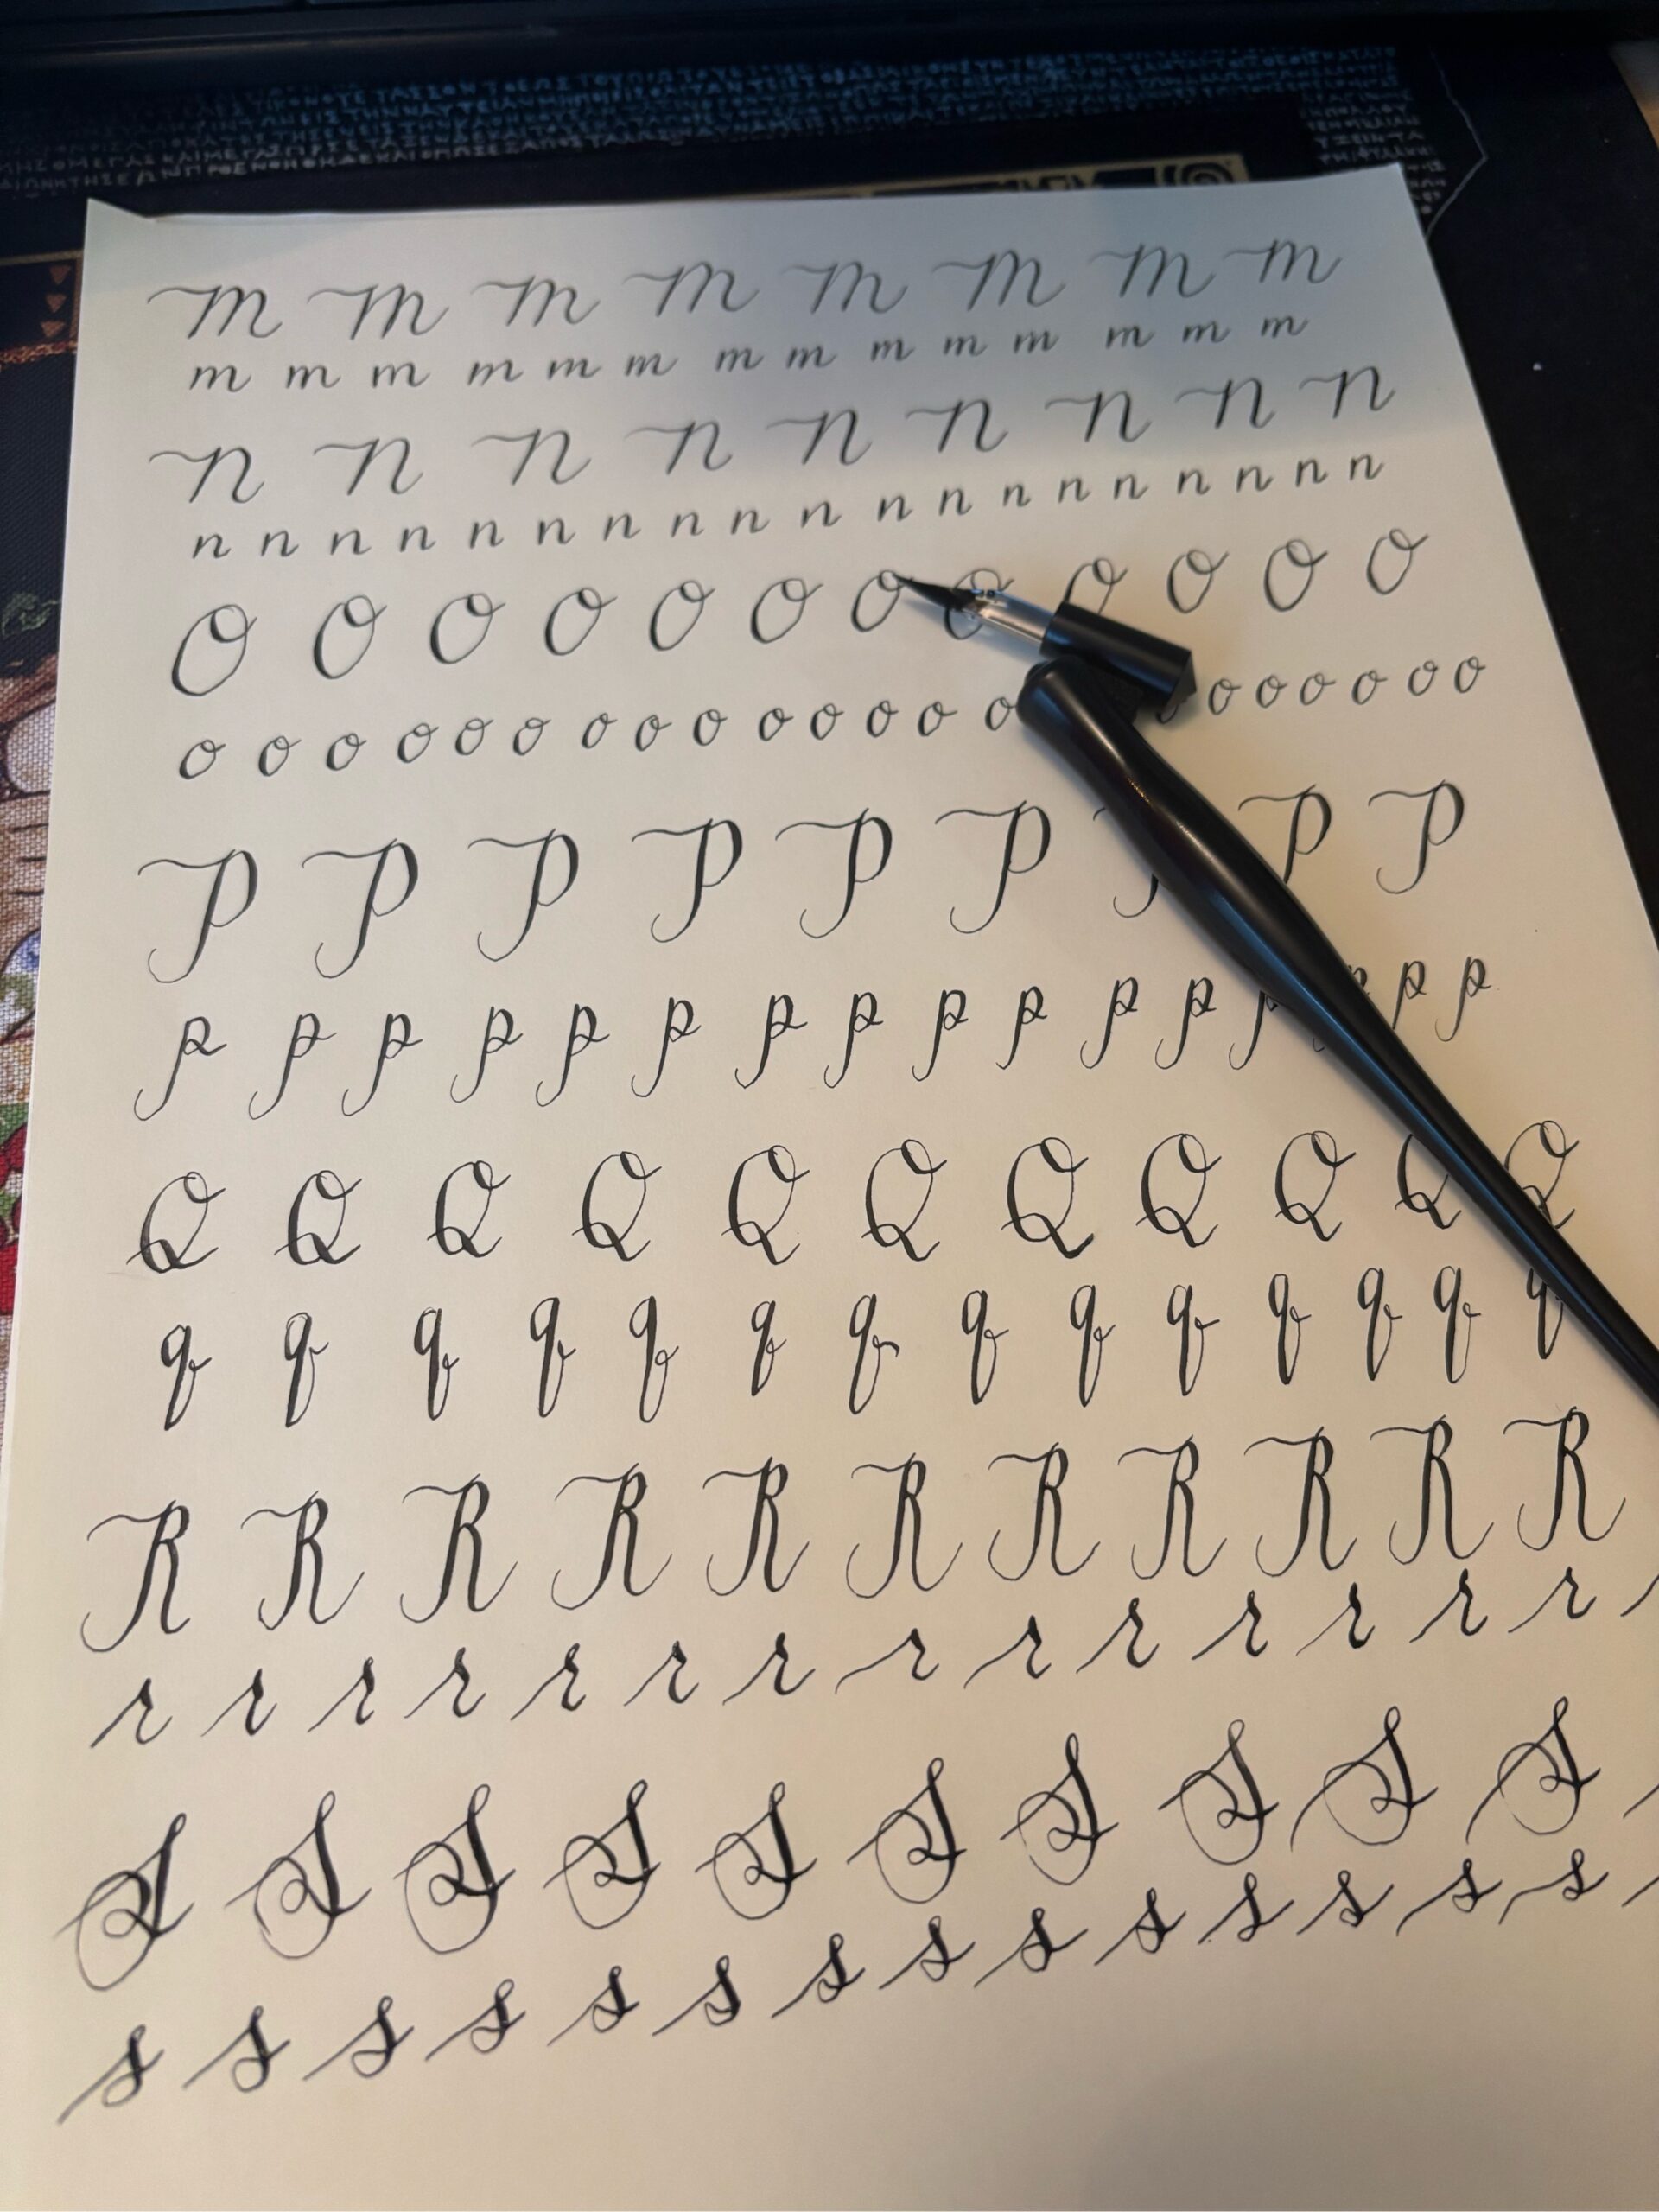 M M M M M M M M
m m m m m m m m m m m m m m
N N N N N N N N N
n n n n n n n n n n n n n n n n n n n
O O O O O O O O O O O O
o o o o o o o o o o o o o o o o o o o o
P P P P P P P P P
p p p p p p p p p p p p p p p p
Q Q Q Q Q Q Q Q Q Q Q
q q q q q q q q q q q q q q
R R R R R R R R R R R
r r r r r r r r r r r r r r
S S S S S S S S S S
s s s s s s s s s s s s s s